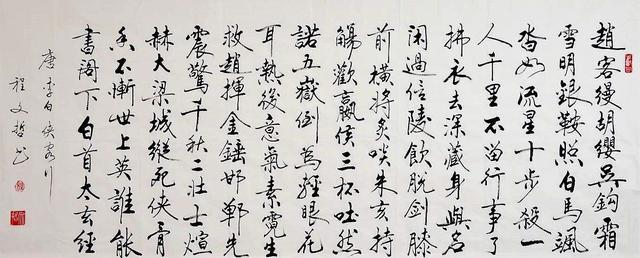 趙客缦胡缨吴鈎霜
雪明銀鞍照白馬颯
沓如流星十步殺一
人千里不留行事了
拂衣去深藏身與名
闲過信陵飲脱劍膝
前横將炙啖朱亥持
觴勸嬴侯三杯吐然
諾五嶽倒為輕眼花
耳熱後意氣素霓生
救趙揮金錘邯鄲先
震驚千秋二壮士煊
赫大梁城縱死侠骨
香不慚世上英誰能
書閣下白首太玄經
唐李白侠客行
程文哲书